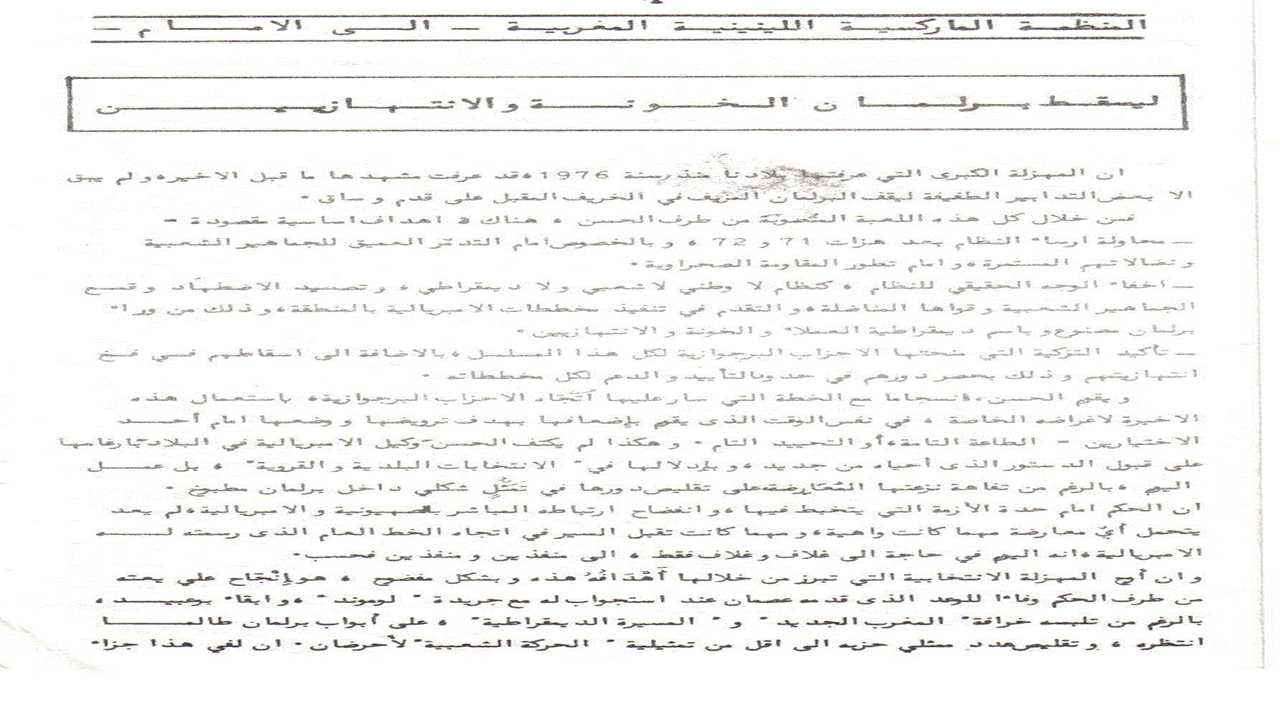 المنظمة الماركسية اللينينية المغربية - الى الامام -
ليسقط برلمان الخونة والانتهازيين
ان المهزلة الكبرى التي عرفتها بلادنا منذ سنة 1976، قد عرفت مشهدها ما قبل الاخير، ولم يبق
الا بعض التدابير الطفيفة ليقف البرلمان المزيف في الخريف المقبل على قدم وساق.
فمن خلال كل هذه اللعبة المنصوبة من طرف الحسن، هناك اهداف اساسية مقصودة =
- محاولة ارساء النظام بعد هزات 71 و 72، وبالخصوص امام التدتر العميق للجماهير الشعبية
ونضالاتهم المستمرة، وامام تطور المقاومة الصحراوية.
- اخفاء الوجه الحقيقي للنظام، كنظام لا وطني لا شعبي ولا ديمقراطي، وتصعيد الاضطهاد وقمع
الجماهير الشعبية وقواها المناضلة، والتقدم في تنفيذ مخططات الامبريالية بالمنطقة، وذلك من وراء
برلمان مصنوع وباسم ديمقراطية العملاء والخونة والانتهازيين.
- تأكيد التزكية التي منحتها الاحزاب البرجوازية لكل هذا المسلسل، بالاضافة الى اسقاطهم في فخ
انتهازيتهم وذلك بحصر دورهم في حدود التأييد والدعم لكل مخططاته.
ويقوم الحسن، انسجاما مع الخطة التي سار عليها اتجاه الاحزاب البرجوازية، باستعمال هذه
الاخيرة لاغراضه الخاصة، في نفس الوقت الذى يقوم بإضعافها بهدف ترويضها ووضعها امام أحد
الاختيارين = الطاعة التامة، أو التحييد التام. وهكذا لم يكتف الحسن وكيل الامبريالية في البلاد بارغامها
على قبول الدستور الذى أحياه من جديد، وبإدلالها في "الانتخابات البلدية والقروية"، بل عمل
اليوم، بالرغم من تفاهة نزعتها المعارضة على تقليص دورها في تمثل شكلي داخل برلمان مطبوخ.
ان الحكم امام حدة الأزمة التي يتخبط فيها، وانفضاح ارتباطه المباشر بالصهيونية والامبريالية، لم يعد
يتحمل أي معارضة مهما كانت واهية، ومهما كانت تقبل السير في اتجاه الخط العام الذى رسمته له
الامبريالية، انه اليوم في حاجة الى غلاف وغلاف فقط، الى منفذين ومنفذين فحسب.
وان المهزلة الانتخابية التي تبرز من خلالها أهدافه هذه وبشكل مفضوح، هو إنجاح علي يعته
من طرف الحكم وفاءا للوعد الذى قدمه عصمان عند استجواب له مع جريدة "لوموند"، وابقاء بوعبيد،
بالرغم من تلبسه خرافة "المغرب الجديد" و "المسيرة الديمقراطية"، على أبواب برلمان طالما
انتظره، وتقليص عدد ممثلي حزبه الى اقل من تمثيلية "الحركة الشعبية" لأحرضان. ان لفي هذا جزاء